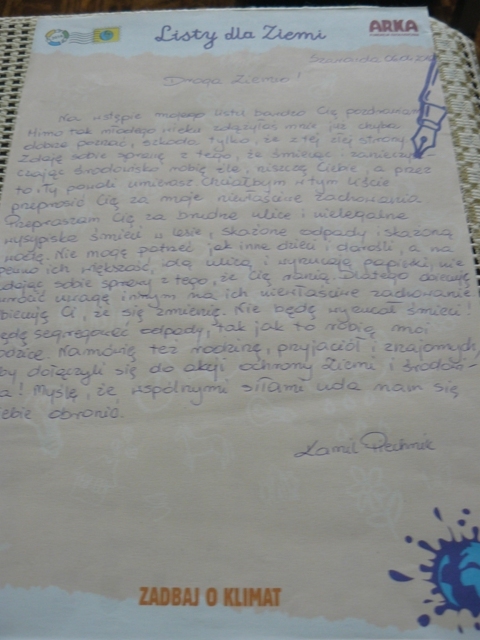 Listy dla Ziemi
ARKA
Droga Ziemio!
Na wstępie mojego listu bardzo Cię pozdrawiam
Mimo tak młodego wieku zdążyłaś mnie już chyba
dobrze poznać, szkoda tylko, że z tej złej strony
Zdaję sobie sprawę z tego, że śmiecąc i zanieczy-
czając środowisko robię źle, niszczę Ciebie, a przez
to Ty powoli umierasz. Chciałbym w tym liście
przeprosić Cię za moje niewłaściwe zachowania
Przepraszam Cię za brudne ulice i nielegalne
wysypiska śmieci w lesie, skażone odpady i skażoną
wodę. Nie mogę patrzeć jak inne dzieci i dorośli, a na
pewno ich większość, idą ulicą i wyrzucają papierki, nie
zdając sobie sprawy z tego, że Cię ranią. Dlatego
wrócić uwagę innym na ich niewłaściwe zachowanie
biecuję Ci, że się zmienię. Nie będę wyrzucał śmieci!
ędę segregować odpady, tak jak to robią moi
odzice. Namówię też rodzinę, przyjaciół i znajomych,
by dołączyli się do akcji ochrony Ziemi i środowi-
a! Myślę, że wspólnymi siłami uda nam się
iebie obronić.
Kamil
ZADBAJ O KLIMAT